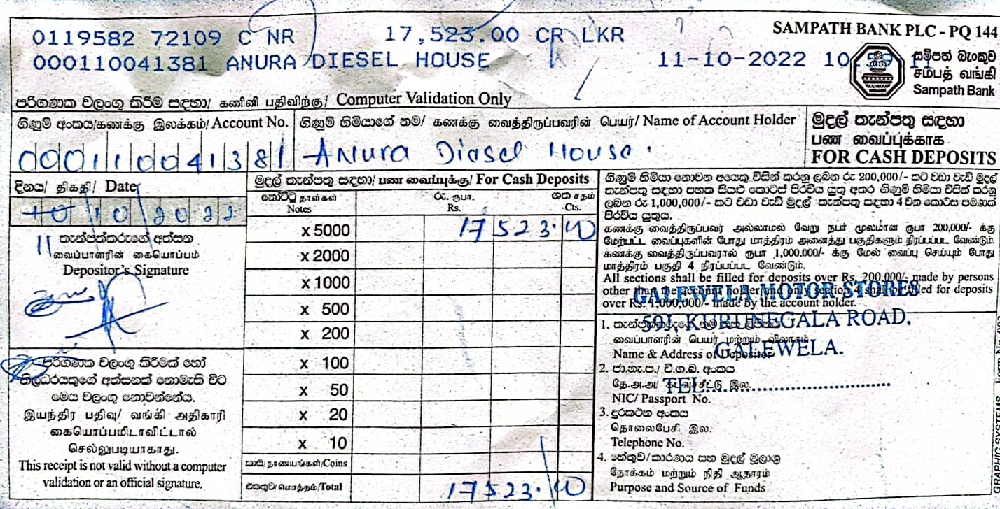 0119582 72109 C NR 17,523.00 CR LKR
000110041381 ANURA DIESEL HOUSE 11-10-2022
SAMPATH BANK PLC - PQ 144
සම්පත් බැංකුව
சம்பத் வங்கி
Sampath Bank
පරිගණක වලංගු කිරීම් සඳහා/ கணினி பதிவிற்கு/ Computer Validation Only
ගිණුම් අංකය/கணக்கு இலக்கம்/ Account No.
ගිණුම් හිමියාගේ නම/ கணக்கு வைத்திருப்பவரின் பெயர்/ Name of Account Holder
මුදල් තැන්පතු සඳහා
பண வைப்புக்காக
FOR CASH DEPOSITS
000110041381 Anura Diesel House.
දිනය/ திகதி/ Date
10 10 2022
11
මුදල් තැන්පතු සඳහා/ பண வைப்புக்கு/ For Cash Deposits
නෝට්ටු தாள்கள் Notes
රු. ரூபா. Rs.
ශත சதம் Cts.
x 5000 17523.00
x 2000
x 1000
x 500
x 200
x 100
x 50
x 20
x 10
කාසි/ நாணயங்கள்/Coins
එකතුව/மொத்தம்/Total 17523.00
තැන්පත්කරුගේ අත්සන
வைப்பாளரின் கையொப்பம்
Depositor's Signature
පරිගණක වලංගු කිරීමක් හෝ
නිලධරයකුගේ අත්සනක් නොමැති විට
මෙය වලංගු නොවන්නේය.
இயந்திர பதிவு/ வங்கி அதிகாரி
கையொப்பமிடாவிட்டால்
செல்லுபடியாகாது.
This receipt is not valid without a computer
validation or an official signature.
ගිණුම් හිමියා නොවන අයෙකු විසින් කරනු ලබන රු 200,000/- කට වඩා වැඩි මුදල්
තැන්පතු සඳහා පහත සියළු කොටස් පිරවිය යුතු අතර ගිණුම් හිමියා විසින් කරනු
ලබන රු 1,000,000/- කට වඩා වැඩි මුදල් තැන්පතු සඳහා 4 වන කොටස පමණක්
පිරවිය යුතුය.
கணக்கு வைத்திருப்பவர் அல்லாமல் வேறு நபர் மூலமான ரூபா 200,000/- க்கு
மேற்பட்ட வைப்புகளின் போது மாத்திரம் அனைத்து பகுதிகளும் நிரப்பப்பட வேண்டும்.
கணக்கு வைத்திருப்பவரால் ரூபா 1,000,000/- க்கு மேல் வைப்பு செய்யும் போது
மாத்திரம் பகுதி 4 நிரப்பப்பட வேண்டும்.
All sections shall be filled for deposits over Rs. 200,000/- made by persons
other than the account holder shall be filled for deposits
over Rs. 1,000,000/- made by the account holder.
GALEWELA MOTOR STORES
59J, KURUNEGALA ROAD,
GALEWELA.
TEL:
1.
வைப்பாளரின் பெயர் மற்றும்
Name & Address of Depositor
2. ජා.හැ.ප./ වි.ග.බ. අංකය
NIC/ Passport No.
3. දුරකථන අංකය
தொலைபேசி இல.
Telephone No.
4. හේතුව/කාරණය සහ මුදල් මූලාශ්‍ර
நோக்கம் மற்றும் நிதி ஆதாரம்
Purpose and Source of Funds